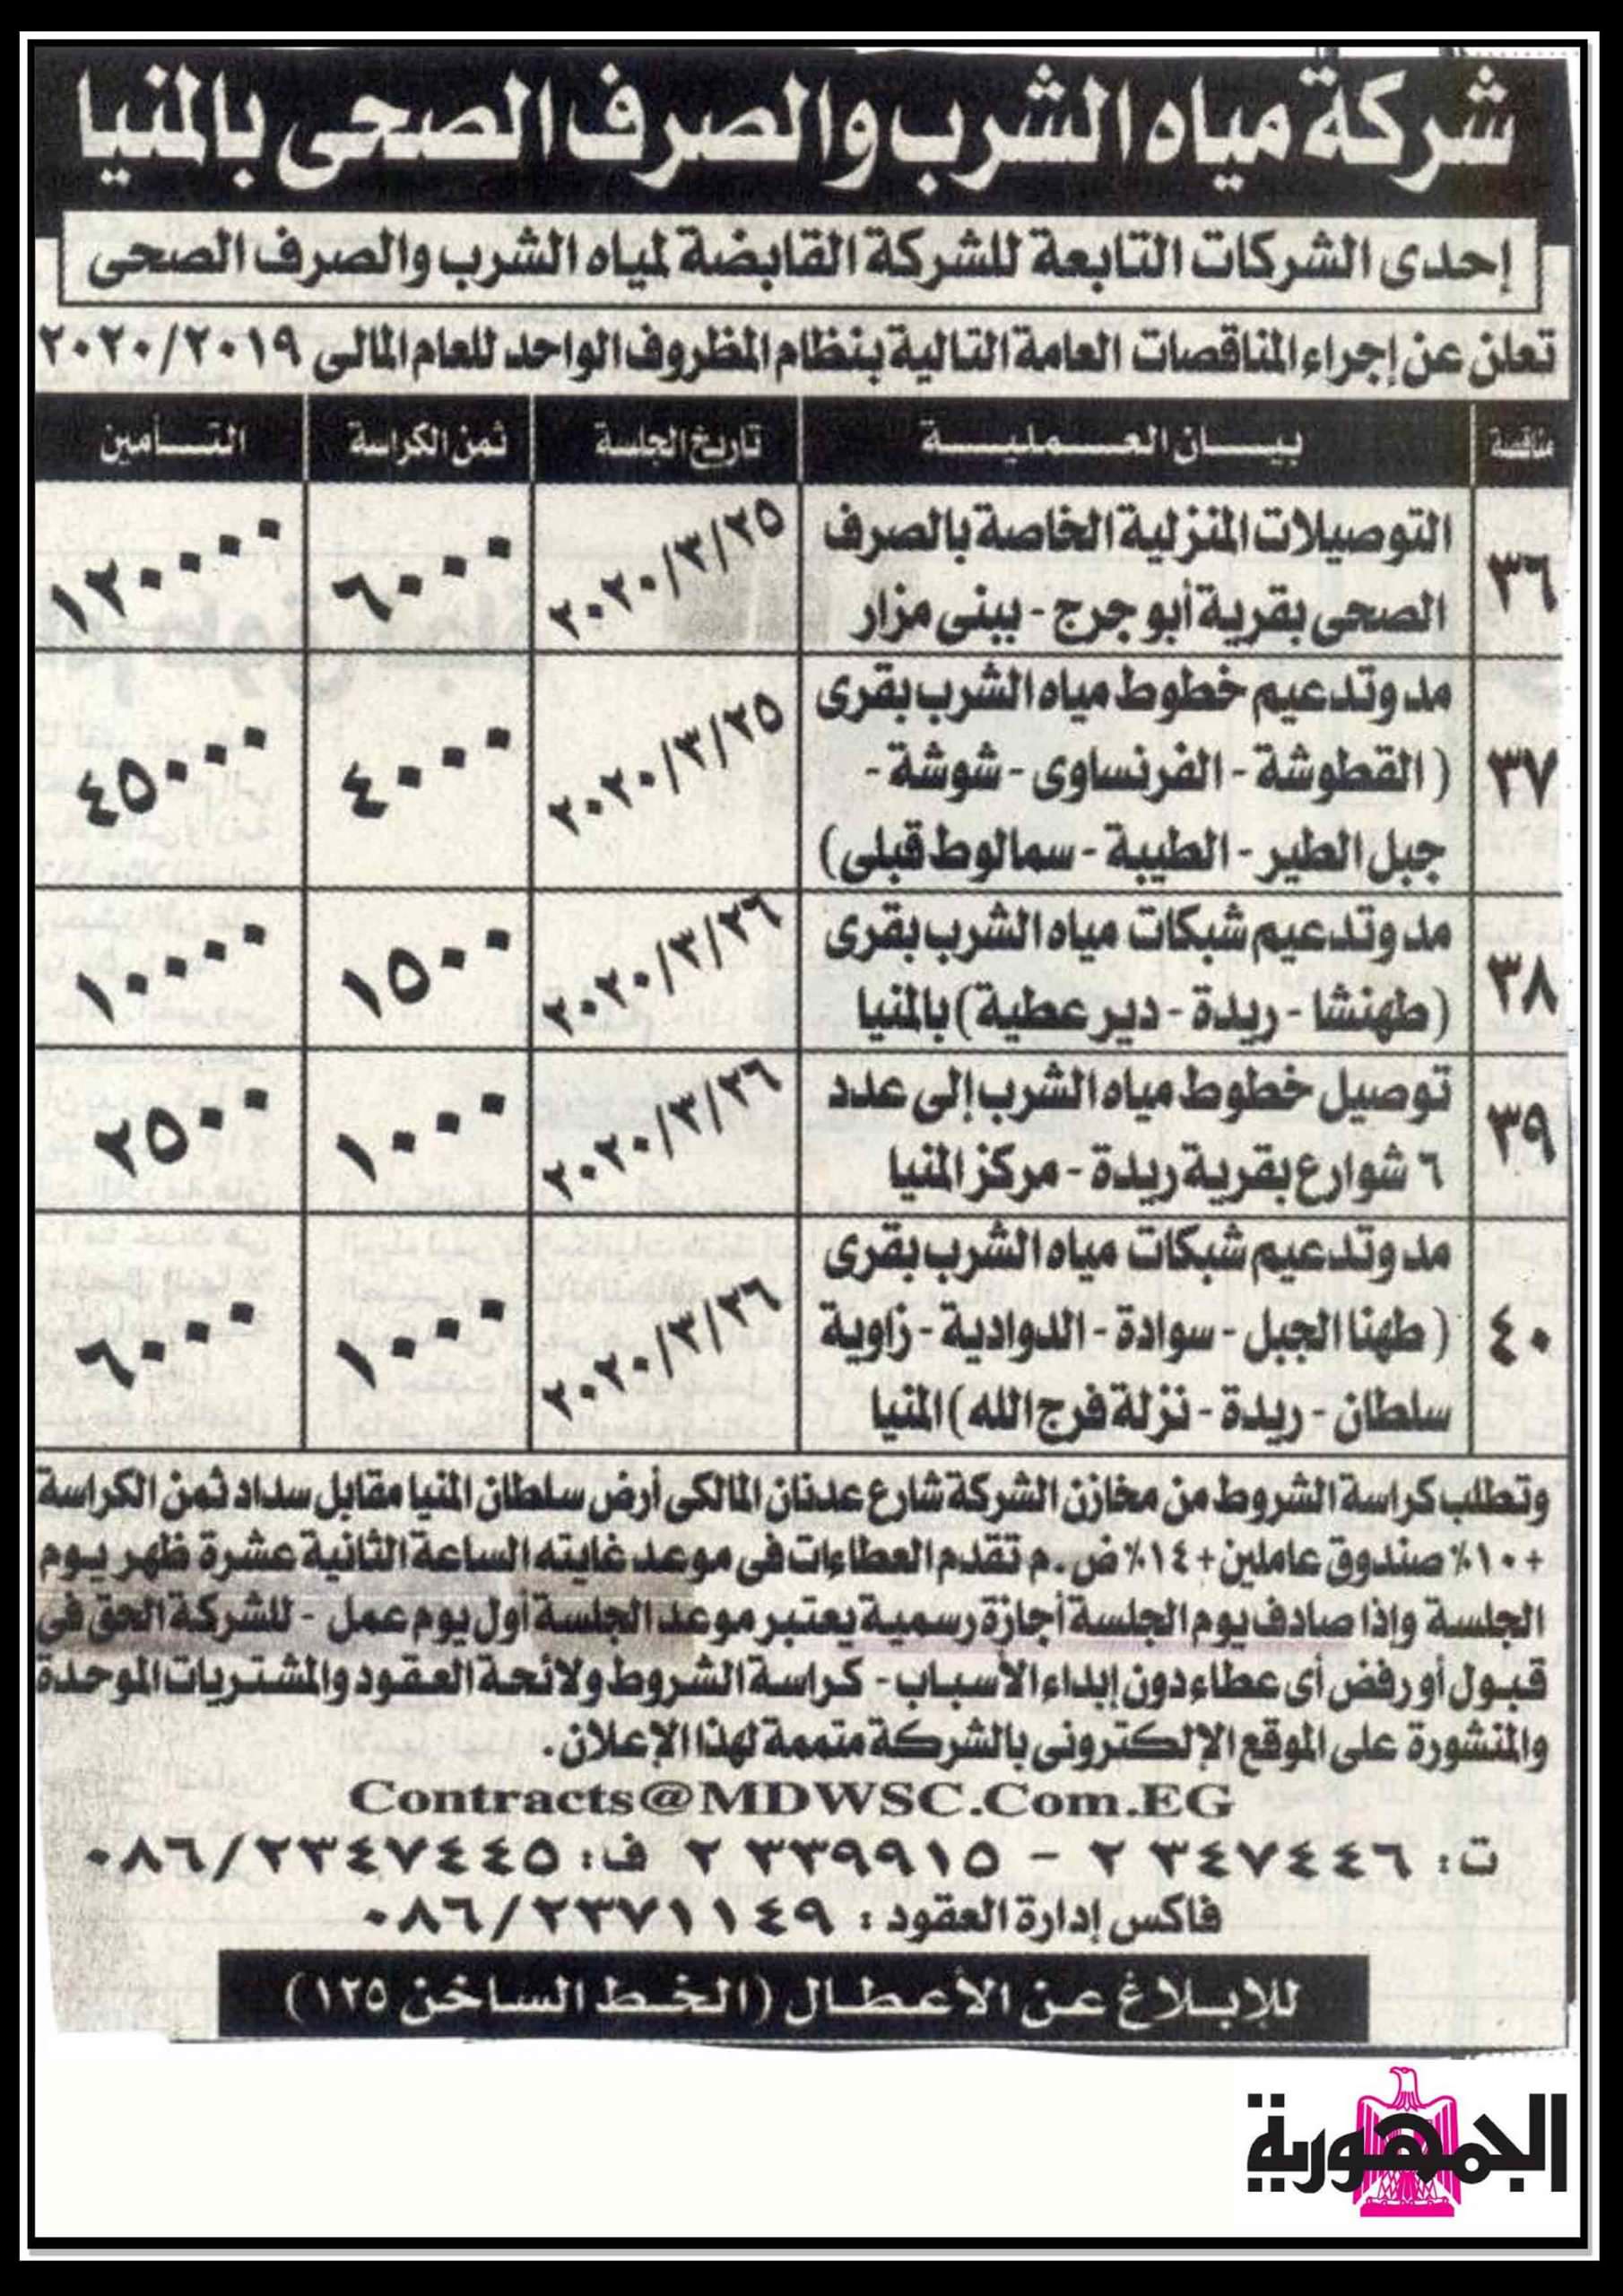 شركة مياه الشرب والصرف الصحى بالمنيا
إحدى الشركات التابعة للشركة القابضة لمياه الشرب والصرف الصحى
تعلن عن إجراء المناقصات العامة التالية بنظام المظروف الواحد للعام المالى ٢٠٢٠/٢٠١٩
مناقصة بيان العملية تاريخ الجلسة ثمن الكراسة التأمين
٣٦ التوصيلات المنزلية الخاصة بالصرف ٢٠٢٠/٣/٢٥ ٦٠٠٠ ١٢٠٠٠٠
الصحى بقرية أبو جرج - ببنى مزار
مد وتدعيم خطوط مياه الشرب بقرى
٣٧ ( القطوشة - الفرنساوى - شوشة - ٢٠٢٠/٣/٢٥ ٤٠٠٠ ٤٥٠٠٠
جبل الطير - الطيبة - سمالوط قبلى )
٣٨ مد وتدعيم شبكات مياه الشرب بقرى ٢٠٢٠/٣/٢٦ ١٥٠٠ ١٠٠٠٠
(طهنشا - ريدة - دير عطية) بالمنيا
٣٩ توصيل خطوط مياه الشرب إلى عدد ٢٠٢٠/٣/٢٦ ١٠٠٠ ٢٥٠٠
٦ شوارع بقرية ريدة - مركز المنيا
مد وتدعيم شبكات مياه الشرب بقرى
٤٠ ( طهنا الجبل - سوادة - الدوادية - زاوية ٢٠٢٠/٣/٢٦ ١٠٠٠ ٦٠٠٠
سلطان - ريدة - نزلة فرج الله ) المنيا
وتطلب كراسة الشروط من مخازن الشركة شارع عدنان المالكى أرض سلطان المنيا مقابل سداد ثمن الكراسة
+ ١٠٪ صندوق عاملين + ١٤٪ ض.م تقدم العطاءات فى موعد غايته الساعة الثانية عشرة ظهر يوم
الجلسة وإذا صادف يوم الجلسة أجازة رسمية يعتبر موعد الجلسة أول يوم عمل - للشركة الحق فى
قبول أو رفض أى عطاء دون إبداء الأسباب - كراسة الشروط ولائحة العقود والمشتريات الموحدة
والمنشورة على الموقع الإلكترونى بالشركة متممة لهذا الإعلان.
Contracts@MDWSC.Com.EG
ت: ٢٣٤٧٤٤٦ - ٢٣٣٩٩١٥ ف: ٠٨٦/٢٣٤٧٤٤٥
فاكس إدارة العقود: ٠٨٦/٢٣٧١١٤٩
للإبلاغ عن الأعطال (الخط الساخن ١٢٥)
الجمهورية